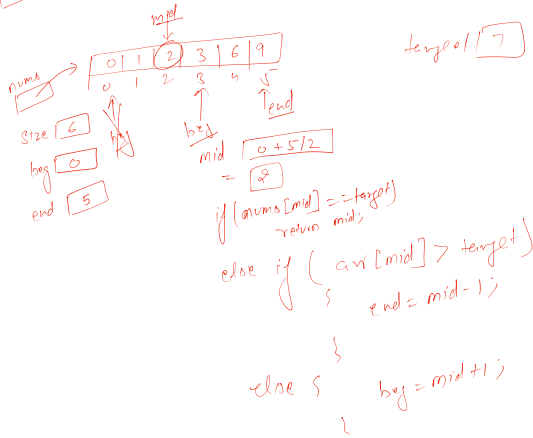 mid
0 1 2 3 6 9
nums
0 1 2 3 4 5
target 7
size 6
beg
beg
end
beg 0
mid 0+5/2
= 2
end 5
if(nums[mid]==target)
return mid;
else if ( arr[mid] > target)
{
end = mid-1;
}
else {
beg = mid+1;
}